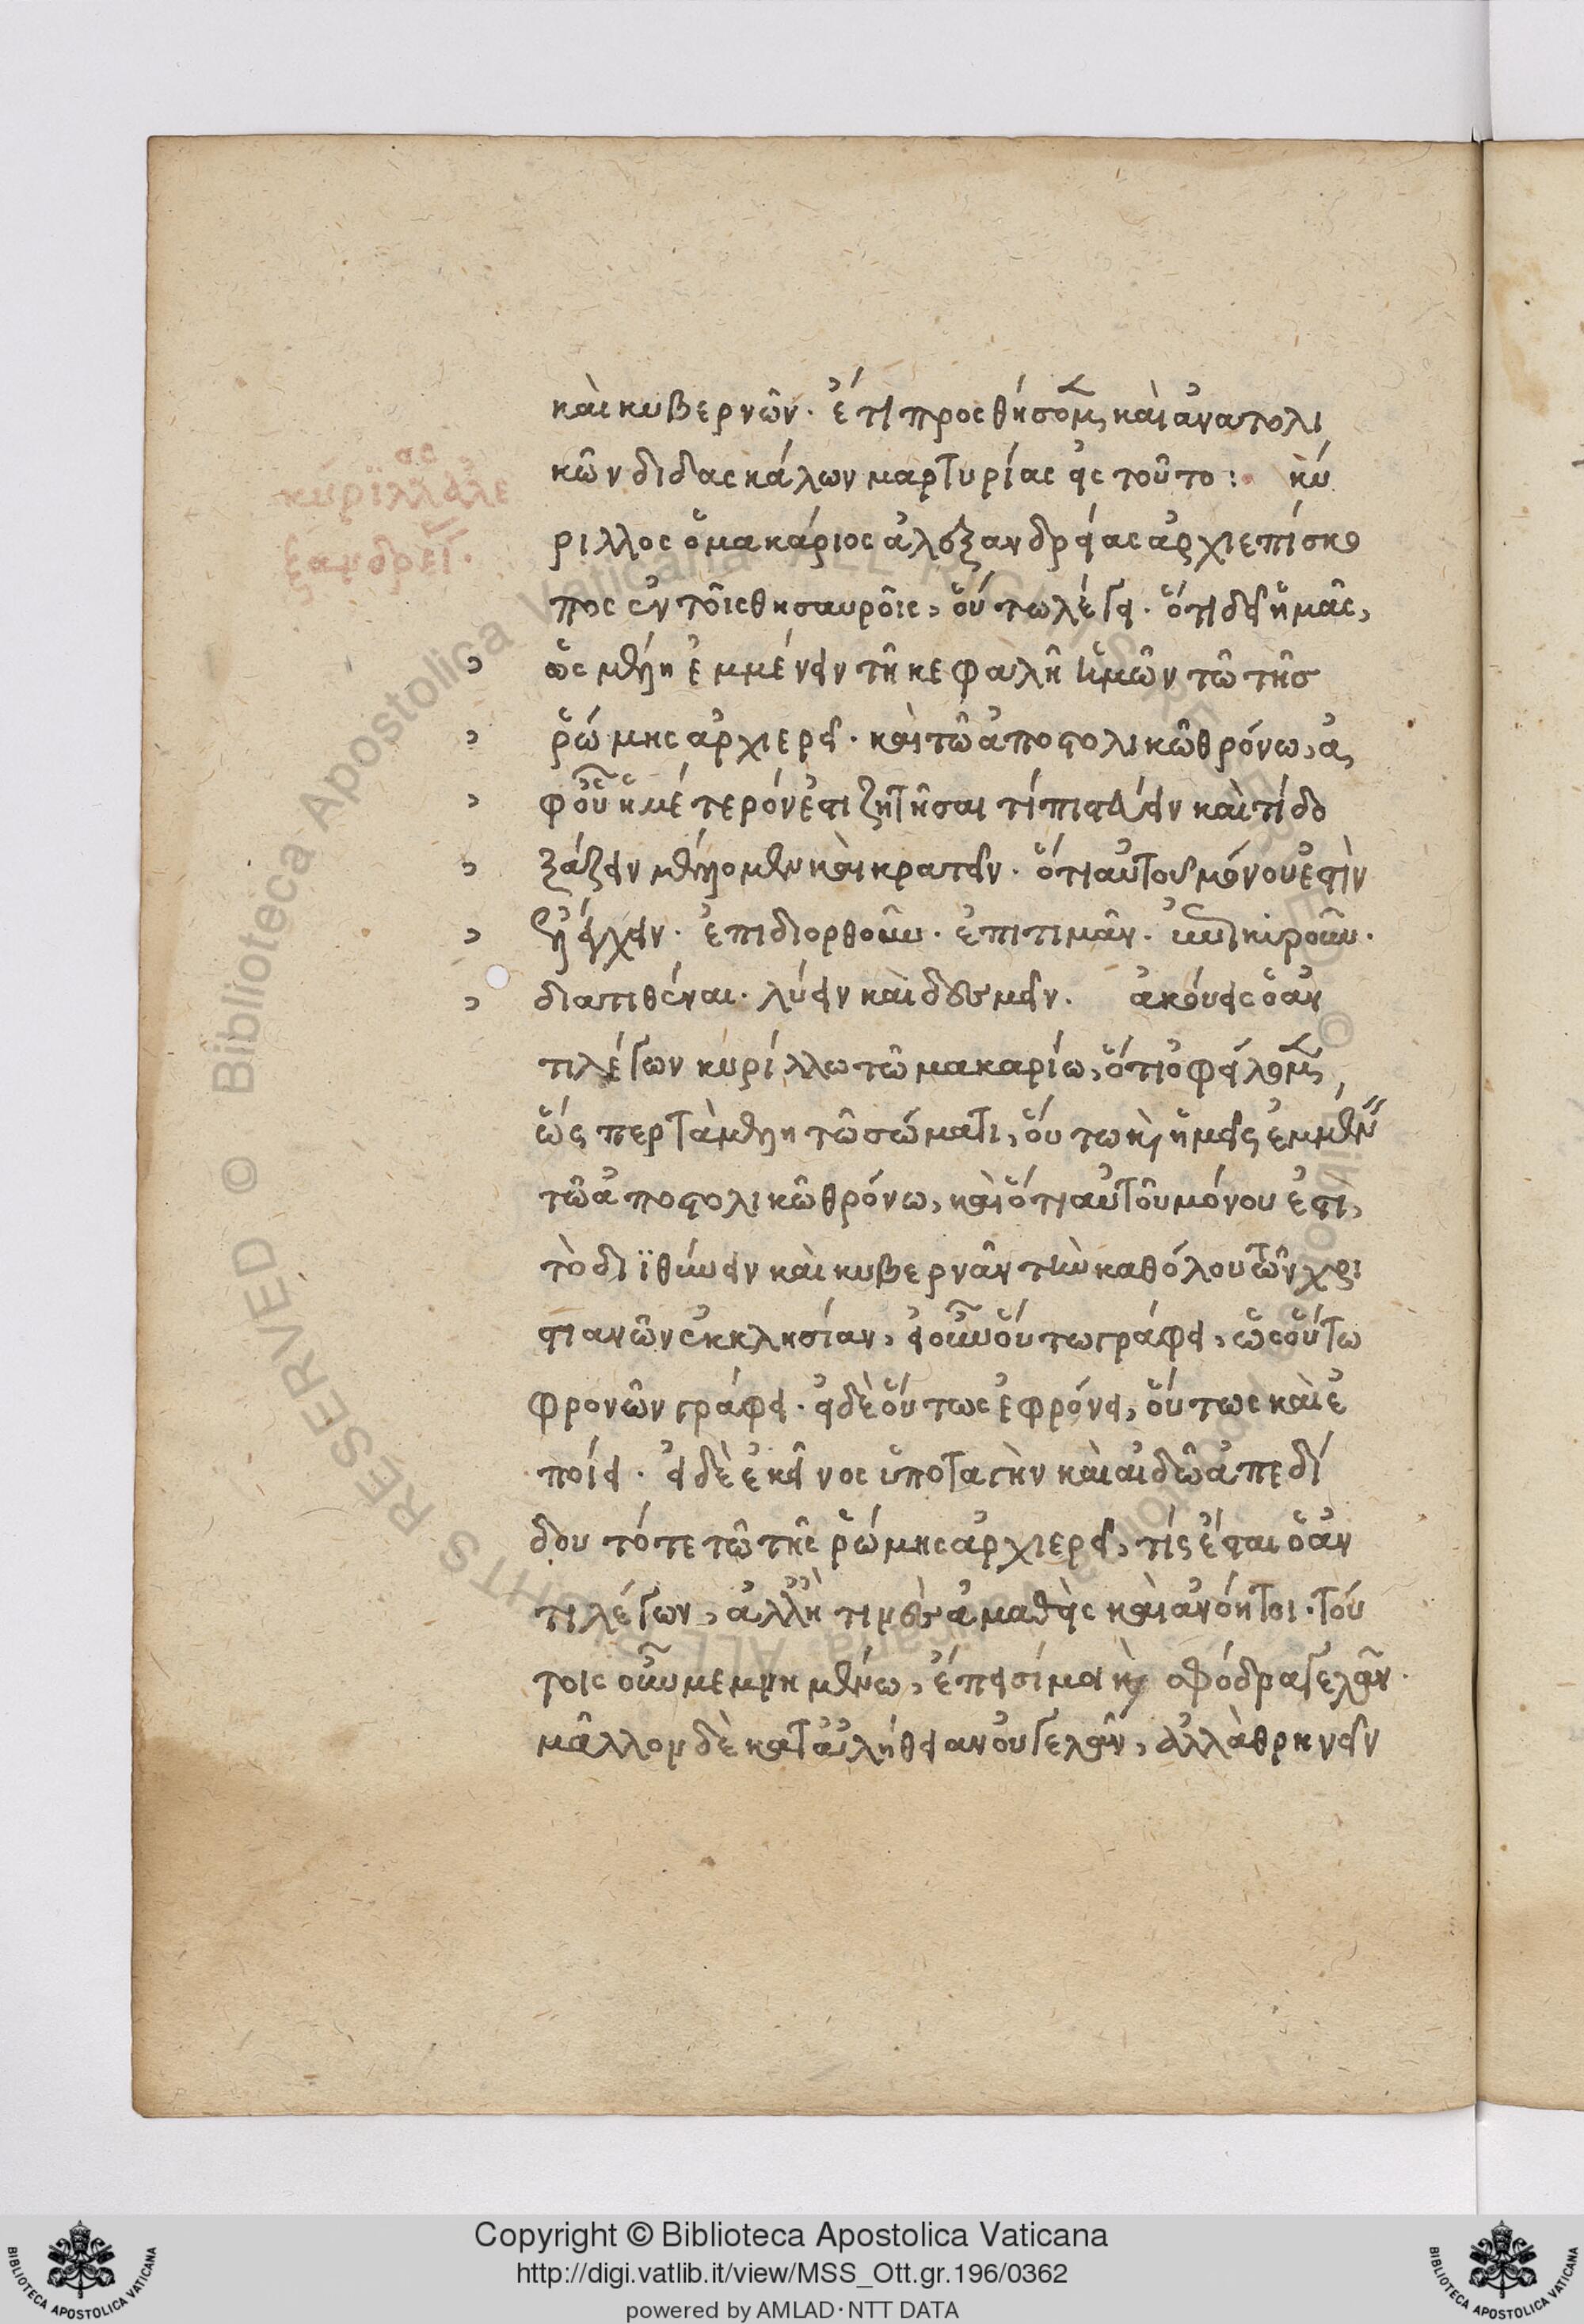 καὶ κυβερνῶν. ἔτι προσθήσομεν καὶ ἀνατολι
κῶν διδασκάλων μαρτυρίας εἰς τοῦτο: κύ
ριλλος ὁ μακάριος ἀλεξανδρείας ἀρχιεπίσκο
πος ἐν τοῖς θησαυροῖς, οὕτω λέγει. ὅτι δεῖ ἡμᾶς,
ὡς μέλη ἐμμένειν τῆ κεφαλῆ ἡμῶν τῶ τῆς
ῥώμης ἀρχιερεῖ. καὶ τῶ ἀποστολικῶ θρόνω, ἀ
φοῦ ἡμέτερόν ἐστι ζητῆσαι τί πιστεύειν καὶ τί δο
ξάζειν καὶ κρατεῖν. ὅτι αὐτοῦ μόνου ἐστὶν
ἐλέγχειν. ἐπιδιορθοῦν. ἐπιτιμᾶν. κυροῦν.
διατιθέναι. λύειν καὶ δεσμεῖν. ἀκούεις ὁ ἀν
τιλέγων κυρίλλω τῶ μακαρίω, ὅτι ὀφείλομεν,
ὥσπερ τὰ μέλη τῶ σώματι, οὕτω καὶ ἡμεῖς ἐμμένειν
τῶ ἀποστολικῶ θρόνω, καὶ ὅτι αὐτοῦ μόνου ἐστι,
τὸ διϊθύνειν καὶ κυβερνᾶν τὴν καθόλου τῶν χρι
στιανῶν ἐκκλησίαν, εἰ οὖν οὕτω γράφει, ὡς οὕτω
φρονῶν γράφει. εἰ δὲ οὕτως ἐφρόνει, οὕτως καὶ ἐ
ποίει. εἰ δὲ ἐκεῖνος ὑποταγὴν καὶ αἰδῶ ἀπεδί
δου τότε τῶ τῆς ῥώμης ἀρχιερεῖ, τίς ἔσται ὁ ἀν
τιλέγων, ἀλλ' ἢ τινὲς ἀμαθεῖς καὶ ἀνόητοι. τού
τοις οὖν μεμνημένω, ἔπεισί μοι καὶ σφόδρα γελᾶν.
μᾶλλον δὲ κατ' ἀλήθειαν οὐ γελᾶν, ἀλλὰ θρηνεῖν
κύριλλος ἀλε
ξανδρεί
Copyright © Biblioteca Apostolica Vaticana
http://digi.vatlib.it/view/MSS_Ott.gr.196/0362
powered by AMLAD · NTT DATA
BIBLIOTECA APOSTOLICA VATICANA
BIBLIOTECA APOSTOLICA VATICANA